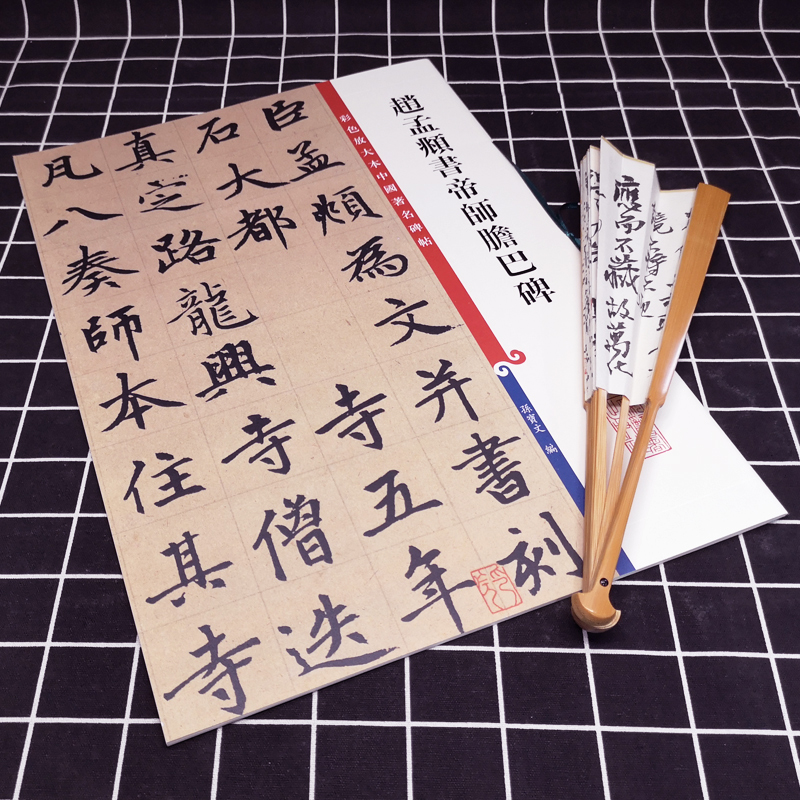 趙孟頫書帝師膽巴碑
彩色放大本中國著名碑帖
孫寶文 編
臣孟頫為文并書刻
石大都寺五年
真定路龍興寺僧迭
凡八奏師本住其寺
應而不藏故萬